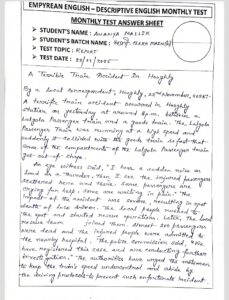 EMPYREAN ENGLISH – DESCRIPTIVE ENGLISH MONTHLY TEST
MONTHLY TEST ANSWER SHEET
➤ STUDENT'S NAME : ANANYA MALIK
➤ STUDENT'S BATCH NAME :
➤ TEST TOPIC : REPORT
➤ TEST DATE :
A Terrible Train Accident In Hooghly
By a Local Correspondent, Hooghly, 22nd November, 2025:-
A terrific train accident occurred in Hooghly
station on yesterday at around 8p.m. between a
Lalgola Passenger train and a goods train. The Lalgola
Passenger Train was running at a high speed and
suddenly collided with the goods train so fast that
some of the compartments of the Lalgola Passenger train
got out of shape.
An eye witness said, "I hear a sudden noise as
loud as a thunder. Then I see the injured passengers
scattered here and there. Some passengers are
crying for help, some are wailing in pain." The
impact of the accident was severe, resulting in spot
deaths of two drivers. The local people rushed to
the spot and started rescue operation. Later, the local
rescue team joined them. Almost passengers
were dead and the injured people were admitted to
the nearby hospital. The police commission said, "We
have registered this case and are conducting further
investigation." The authorities have urged the
to keep the train's speed under control and abide by
the driving protocols to prevent such unfortunate incident.